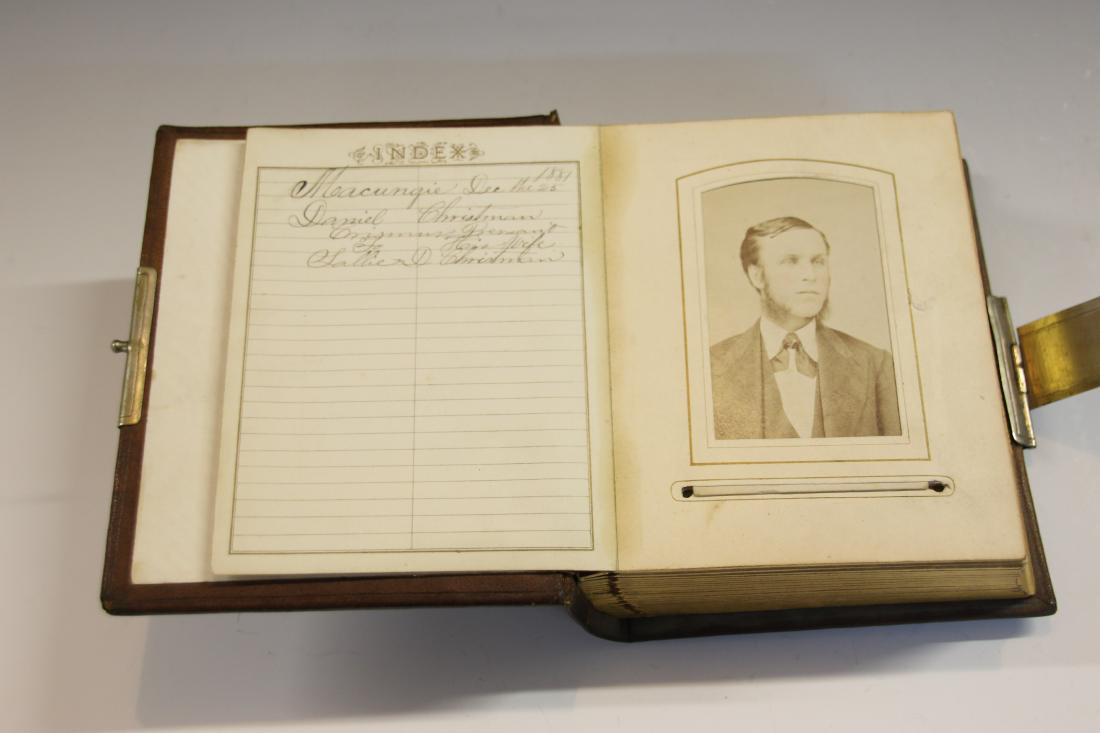 INDEX
1881
Macungie Dec the 25
Daniel Christman
Crismus Presant
To His Wife
Sallie D Christman